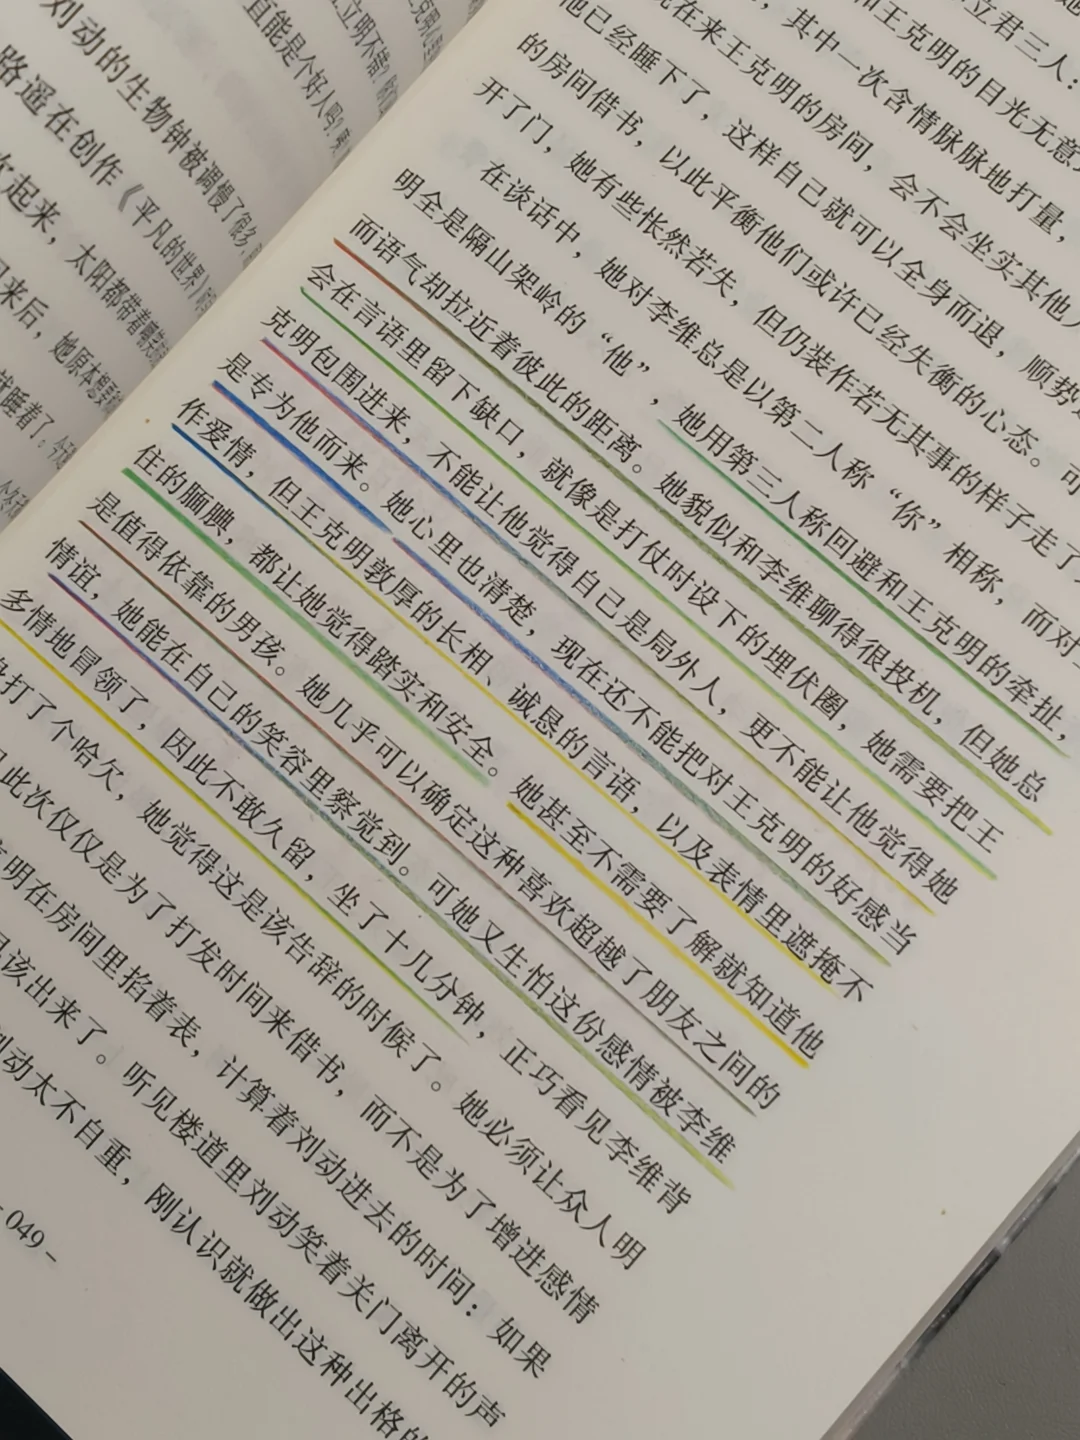 刘动的生物钟被调慢了很多
路遥在创作《平凡的世界》
起来，太阳都带着
回来后，她原本想
就睡着了。
立明不错？
值能是个好人吗？
立君三人：
和王克明的目光无意
，其中一次含情脉脉地打量，
现在来王克明的房间，会不会坐实其他人
他已经睡下了，这样自己就可以全身而退，顺势
的房间借书，以此平衡他们或许已经失衡的心态。可
开了门，她有些怅然若失，但仍装作若无其事的样子走了
在谈话中，她对李维总是以第二人称“你”相称，而对
明全是隔山架岭的“他”，她用第三人称回避和王克明的牵扯，
而语气却拉近着彼此的距离。她貌似和李维聊得很投机，但她总
会在言语里留下缺口，就像是打仗时设下的埋伏圈，她需要把王
克明包围进来，不能让他觉得自己是局外人，更不能让他觉得她
是专为他而来。她心里也清楚，现在还不能把对王克明的好感当
作爱情，但王克明敦厚的长相、诚恳的言语，以及表情里遮掩不
住的腼腆，都让她觉得踏实和安全。她甚至不需要了解就知道他
是值得依靠的男孩。她几乎可以确定这种喜欢超越了朋友之间的
情谊，她能在自己的笑容里察觉到。可她又生怕这份感情被李维
多情地冒领了，因此不敢久留，坐了十几分钟，正巧看见李维背
打了个哈欠，她觉得这是该告辞的时候了。她必须让众人明
此次仅仅是为了打发时间来借书，而不是为了增进感情
克明在房间里掐着表，计算着刘动进去的时间：如果
该出来了。听见楼道里刘动笑着关门离开的声
刘动太不自重，刚认识就做出这种出格的
049 -